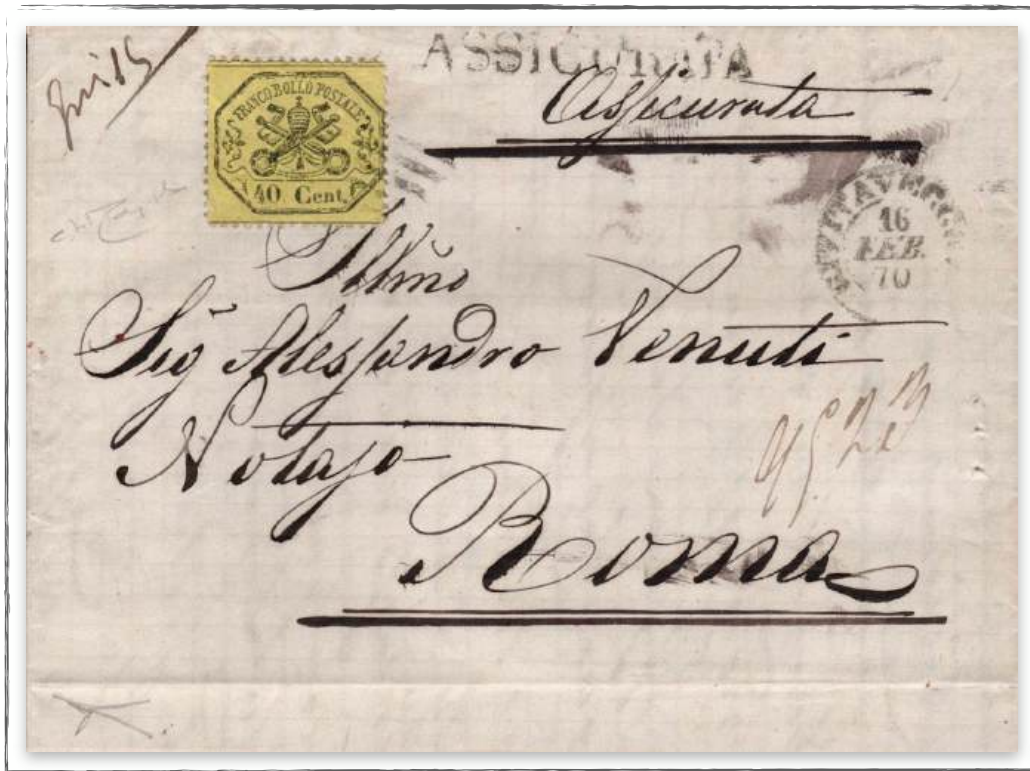 ASSICURATA
Assicurata
FRANCO BOLLO POSTALE
40 Cent.
CIVITAVECCHIA
16
FEB.
70
Illm̃o
Sig̃ Alessandro Venuti
Notajo
Roma